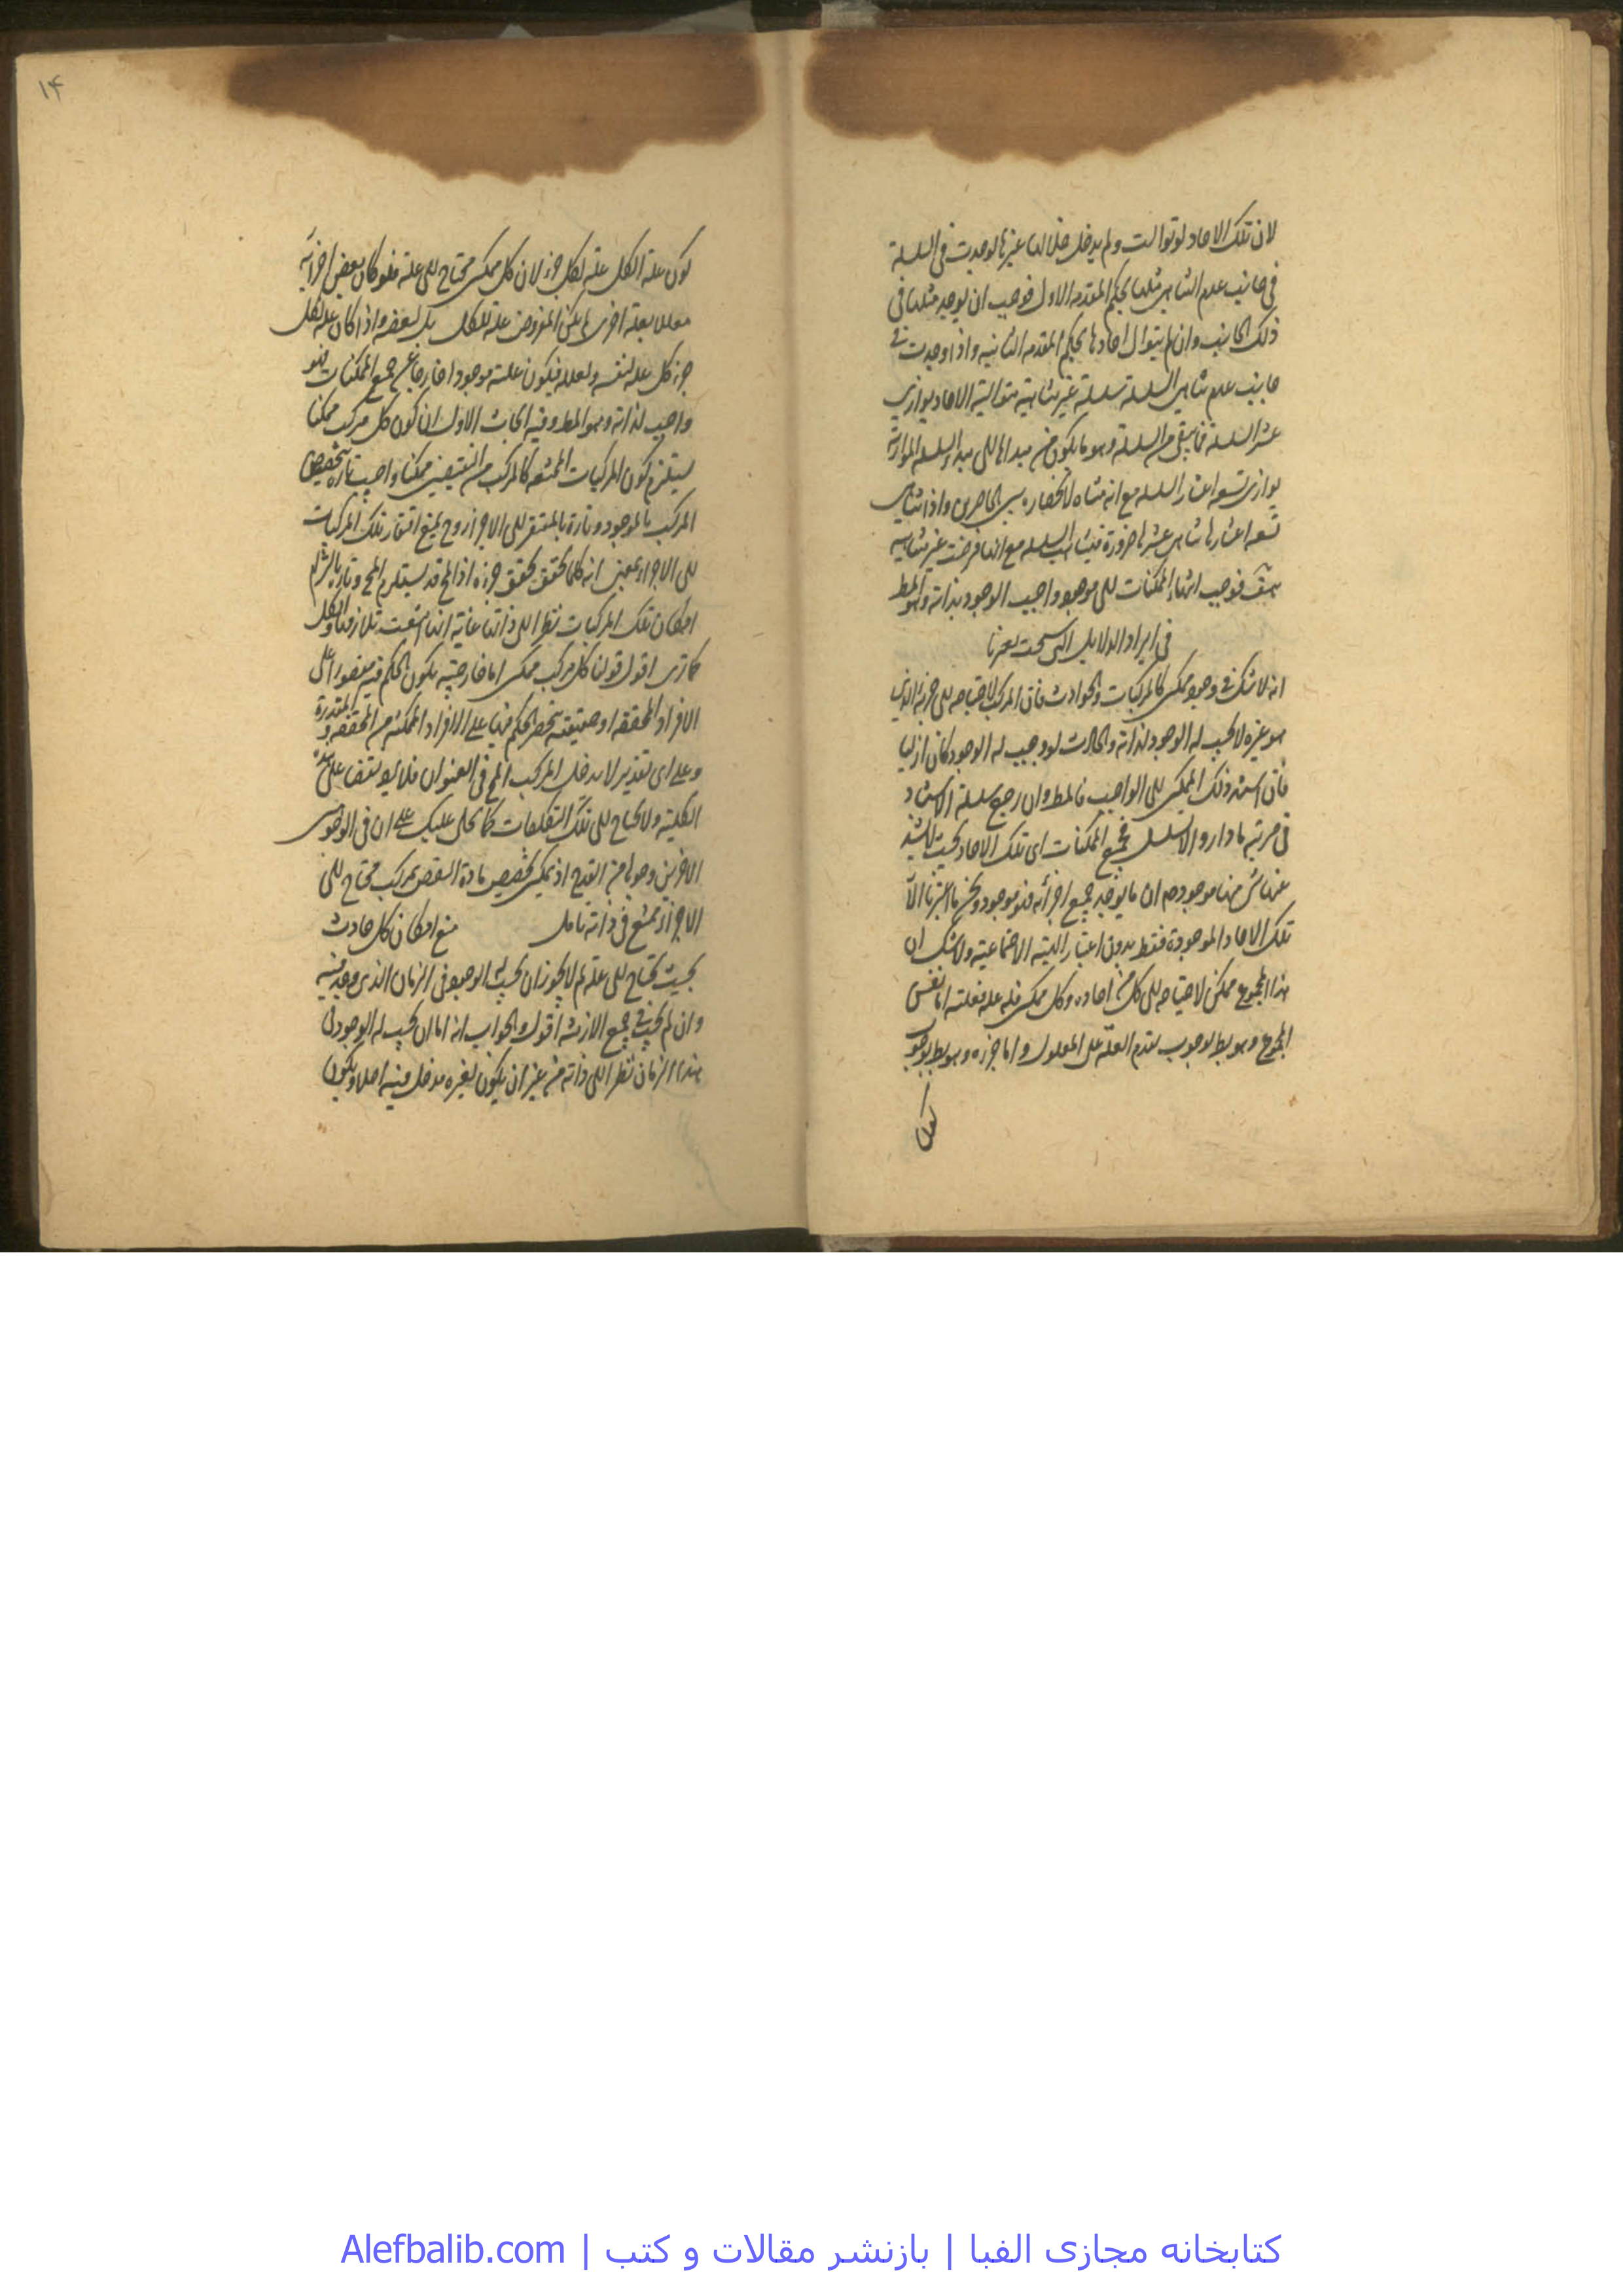 لان تلك الاحاد لو توالت ولم يدخل خلالها غيرها لوجدت فى السلسلة
فى جانب عدم التناهى مثلها بحكم المقدمه الاولى فوجب ان يوجد مثلها فى
ذلك الجانب وان لم يتوال احادها بحكم المقدمه الثانيه واذا وجدت فى
جانب عدم تناهى السلسلة سلسلة غير متناهية متوالية الاحاد يوازى
عشر السلسلة فما بقى من السلسلة وهو ما يكون من مبداها الى مبداء السلسله الموازية
يوازى تسعه اعشار السلسله مع انه متناه لانحصاره بين الحاصرين واذا تناهى
تسعه اعشارها تناهى عشرها ضرورة فيتناهى السلسله مع انها فرضت غير متناهيه
هف فوجب انتهاء الممكنات الى موجود واجب الوجود بذاته وهو المط
فى ايراد الدلايل التى سنحت لعزنا
انه لا شك فى وجود ممكن كالمركبات والحوادث فان المركب لاحتياجه الى جزئه الذى
هو غيره لا يجب له الوجود لذاته والحادث لو وجب له الوجود لكان ازليا
فان استند ذلك الممكن الى الواجب فالمط وان رجع سلسلة الاستناد
فى مرتبه ما دار والا تسلسل فجميع الممكنات اى تلك الاحاد بحيث لا يشذ
عنها شى منها موجود ضم ان ما يوجد جميع اجزائه فهو موجود ونحن ما اعتبرنا الا
تلك الاحاد الموجودة فقط بدون اعتبار الهيئه الاجتماعية ولا شك ان
هذا المجموع ممكن لاحتياجه الى كل من احاده وكل ممكن فله علة فعلته اما نفس
المجموع وهو بط لوجوب تقدم العلة على المعلول واما جزءه وهو بط لوجوب
كون
١٤
كون علة الكل علة لكل جزء لان كل ممكن محتاج الى علة فلو كان بعض اجزائه
معللا بعلة اخرى لم يكن المفروض علة للكل بل لبعضه واذا كان علة لكل
جزء كل علة لنفسه ولعلله فيكون علته موجودا خارجا عن جميع الممكنات فهو
واجب لذاته وهو المط وفيه ابحاث الاول ان كون كل مركب ممكنا
يستلزم كون المركبات الممتنعه كالمركب من النقيضين ممكنا واجيب تارة بتخصيص
المركب بالموجود وتارة بالمفتقر الى الاجزاء وح يمنع افتقار تلك المركبات
الى الاجزاء بمعنى انه كلما تحقق تحقق جزءه اذ المح قد يستلزم المح وتارة بالتزام
امكان تلك المركبات نظرا الى ذاتها غايته انها امتنعت تلازمها والكل
كما ترى اقول قولنا كل مركب ممكن اما خارجية يكون الحكم فيه مقصورا على
الافراد المحققه او حقيقيه ينحصر الحكم فيها على الافراد الممكنه من المحققه والمقدرة
وعلى اى تقدير لا يدخل المركب المح فى العنوان فلا
الكلية ولا يحتاج الى تلك التكلفات كما تجلى عليك على ان فى الوجهين
الاخرين وجوها من القدح اذ يمكن تخصيص مادة النقض بمركب محتاج الى
الاجزاء ممتنع فى ذاته تامل منع امكان كل حادث
بحيث يحتاج الى علة لم لا يجوز ان يجب له الوجود فى الزمان الذى وجد فيه
وان لم يجب فى جميع الازمنه اقول والجواب انه اما ان يجب له الوجود فى
هذا الزمان نظرا الى ذاته من غير ان يكون لغيره مدخل فيه اصلا ويكون
کتابخانه مجازی الفبا | بازنشر مقالات و کتب | Alefbalib.com